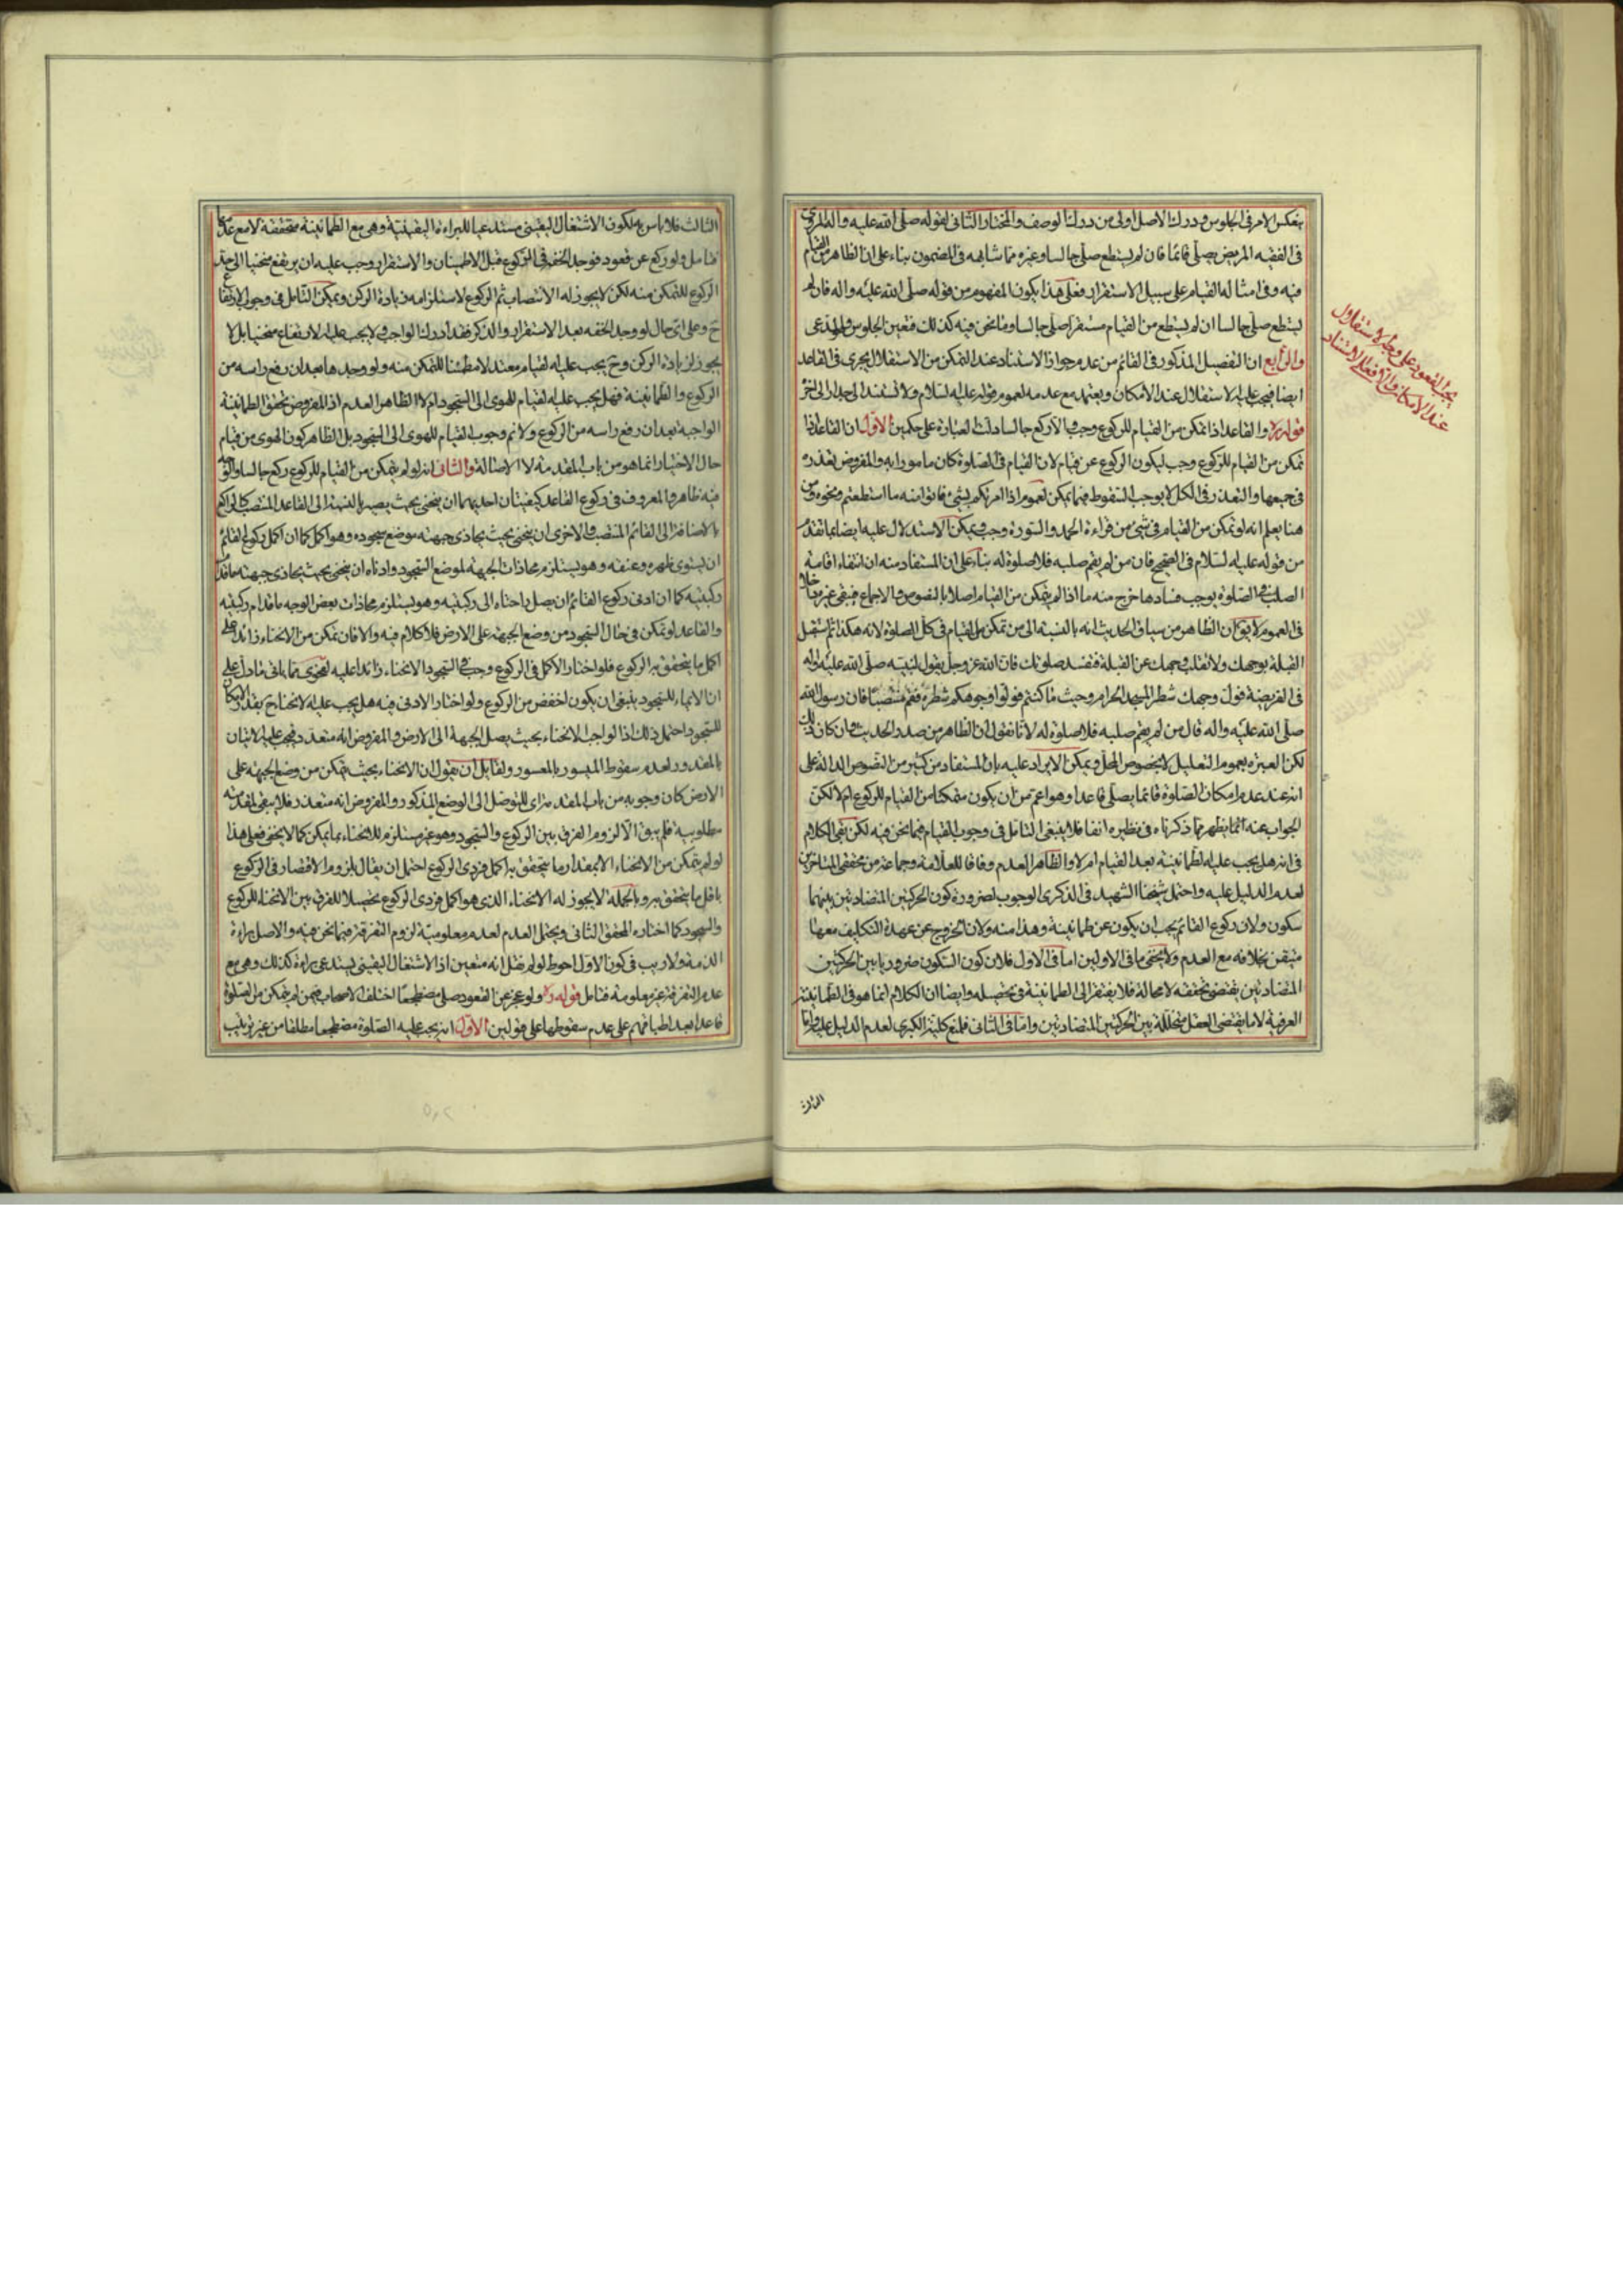 بعكس الامر في الجلوس ودرك الاصل اولى من درك الوصف والمختار الثاني لقوله صلى الله عليه واله المروي
في الفقيه المريض يصلي قائما فان لم يستطع صلى جالسا وغيره مما شابهه في المضمون بناء على ان الظاهر من القيام
فيه وفي امثاله القيام على سبيل الاستقرار فعلى هذا يكون المفهوم من قوله صلى الله عليه واله فان لم
يستطع صلى جالسا ان لم يستطع من القيام مستقرا صلى جالسا وما نحن فيه كذلك فتعين الجلوس وهو المدعى
والرابع ان التفصيل المذكور في القائم من عدم جواز الاستناد عند التمكن من الاستقلال يجري في القاعد
ايضا فيجب عليه الاستقلال عند الامكان ويعتمد مع عدمه لعموم قوله عليه السلام ولا تستند الى جدار الى اخره
قوله ره والقاعد اذا تمكن من القيام للركوع وجب والا ركع جالسا دلت العبارة على حكمين الاول ان القاعد اذا
تمكن من القيام للركوع وجب ليكون الركوع عن قيام لان القيام في الصلوة كان مامورا به والمفروض تعذره
في جميعها والتعذر في الكل لا يوجب السقوط فيما يمكن لعموم اذا امرتكم بشئ فاتوا منه ما استطعتم ونحوه ومن
هنا يعلم انه لو تمكن من القيام في شئ من قراءة الحمد والسورة وجب ويمكن الاستدلال عليه ايضا بما تقدم
من قوله عليه السلام في الصحيح فان من لم يقم صلبه فلا صلوة له بناء على ان المستفاد منه ان انتفاء اقامة
الصلب في الصلوة يوجب فسادها خرج منه ما اذا لم يتمكن من القيام اصلا بالنصوص والاجماع فبقي غيره داخلا
في العموم لا يق ان الظاهر من سياق الحديث انه بالنسبة الى من تمكن من القيام في كل الصلوة لانه هكذا ثم استقبل
القبلة بوجهك ولا تقلب وجهك عن القبلة فتفسد صلوتك فان الله عز وجل يقول لنبيه صلى الله عليه واله
في الفريضة فول وجهك شطر المسجد الحرام وحيث ما كنتم فولوا وجوهكم شطره فقم منتصبا فان رسول الله
صلى الله عليه واله قال من لم يقم صلبه فلا صلوة له لانا نقول ان الظاهر من صدر الحديث وان كان ذلك
لكن العبرة بعموم التعليل لا بخصوص المحل ويمكن الايراد عليه بان المستفاد من كثير من النصوص الدالة على
انه عند عدم امكان الصلوة قائما يصلي قاعدا وهو اعم من ان يكون متمكنا من القيام للركوع ام لا لكن
الجواب عنه انما يظهر مما ذكرناه في نظيره انفا فلا ينبغي التامل في وجوب القيام فيما نحن فيه لكن بقي الكلام
في انه هل يجب عليه الطمانينة بعد القيام ام لا والظاهر العدم وفاقا للعلامة وجماعة من محققي المتاخرين
لعدم الدليل عليه واحتمل شيخنا الشهيد في الذكرى الوجوب لضرورة كون الحركتين المتضادتين بينهما
سكون ولان ركوع القائم يجب ان يكون عن طمانينة وهذا منه ولان الخروج عن عهدة التكليف معها
متيقن بخلافه مع العدم ولا يخفى ما في الاولين اما في الاول فلان كون السكون ضروريا بين الحركتين
المتضادتين يقتضي تحققه لا محالة فلا يفتقر الى الطمانينة في تحصيله وايضا ان الكلام انما هو في الطمانينة
العرفية لا ما يقتضي العقل متخللة بين الحركتين المتضادتين واما في الثاني فلمنع كلية الكبرى لعدم الدليل عليها واما
الثالث
يجب القعود على وجه الاستقلال
عند الامكان والا فعلى الاستناد
الثالث فلا باس به لكون الاشتغال اليقيني مستدعيا للبراءة اليقينية وهي مع الطمانينة متحققة لا مع عدمها
فتامل ولو ركع عن قعود فوجد الخفة في الركوع قبل الاطمينان والاستقرار وجب عليه ان يرتفع منحنيا الى حد
الركوع للتمكن منه لكن لا يجوز له الانتصاب ثم الركوع لاستلزامه زيادة الركن ويمكن التامل في وجوب الارتفاع
ح وعلى اي حال لو وجد الخفة بعد الاستقرار والذكر فقد ادرك الواجب فلا يجب عليه الارتفاع منحنيا بل لا
يجوز لزيادة الركن وح يجب عليه القيام معتدلا مطمئنا للتمكن منه ولو وجدها بعد ان رفع راسه من
الركوع والطمانينة فهل يجب عليه القيام للهوي الى السجود ام لا الظاهر العدم اذ المفروض تحقق الطمانينة
الواجبة بعد ان رفع راسه من الركوع ولا نم وجوب القيام للهوي الى السجود بل الظاهر كون الهوي من قيام
حال الاختيار انما هو من باب المقدمة لا الاصالة والثاني انه لو لم يتمكن من القيام للركوع ركع جالسا والوجه
فيه ظاهر والمعروف في ركوع القاعد كيفيتان احديهما ان ينحني بحيث يصير بالنسبة الى القاعد المنتصب كالراكع
بالاضافة الى القائم المنتصب والاخرى ان ينحني بحيث يحاذي جبهته موضع سجوده وهو اكمل كما ان اكمل ركوع القائم
ان يستوي ظهره وعنقه وهو يستلزم محاذات الجبهة لموضع السجود وادناه ان ينحني بحيث يحاذي جبهته ما قدام
ركبتيه كما ان ادنى ركوع القائم ان يصل راحتاه الى ركبتيه وهو يستلزم محاذات بعض الوجه ما قدام ركبتيه
والقاعد لو تمكن في حال السجود من وضع الجبهة على الارض فلا كلام فيه والا فان تمكن من الانحناء زائدا على
اكمل ما يتحقق به الركوع فلو اختار الاكمل في الركوع وجب في السجود الانحناء زائدا عليه لفحوى ما ياتي مما دل على
ان الايماء للسجود ينبغي ان يكون اخفض من الركوع ولو اختار الادنى فيه هل يجب عليه الانحناء ح بقدر الامكان
للسجود احتمل ذلك اذ الواجب الانحناء بحيث يصل الجبهة الى الارض والمفروض انه متعذر فيجب عليه الاتيان
بالمقدور لعدم سقوط الميسور بالمعسور ولقائل ان يقول ان الانحناء بحيث يتمكن من وضع الجبهة على
الارض كان وجوبه من باب المقدمة اي للتوصل الى الوضع المذكور والمفروض انه متعذر فلا يبقى لمقدمته
مطلوبية فلم يبق الا لزوم الفرق بين الركوع والسجود وهو غير مستلزم للانحناء بما يمكن كما لا يخفى فعلى هذا
لو لم يتمكن من الانحناء الا بمقدار ما يتحقق به اكمل فردي الركوع احتمل ان يقال بلزوم الاقتصار في الركوع
باقل ما يتحقق به وبالجملة لا يجوز له الانحناء الذي هو اكمل فردي الركوع تحصيلا للفرق بين الانحناء للركوع
والسجود كما اختاره المحقق الثاني ويحتمل العدم لعدم معلومية لزوم التفرقة فيما نحن فيه والاصل براءة
الذمة ولا ريب في كون الاول احوط لو لم نقل انه متعين اذ الاشتغال اليقيني يستدعي براءة كذلك وهي مع
عدم التفرقة غير معلومة فتامل قوله ره ولو عجز عن القعود صلى مضطجعا اختلف الاصحاب فيمن لم يتمكن من الصلوة
قاعدا بعد اطباقهم على عدم سقوطها على قولين الاول انه يجب عليه الصلوة مضطجعا مطلقا من غير ترتيب